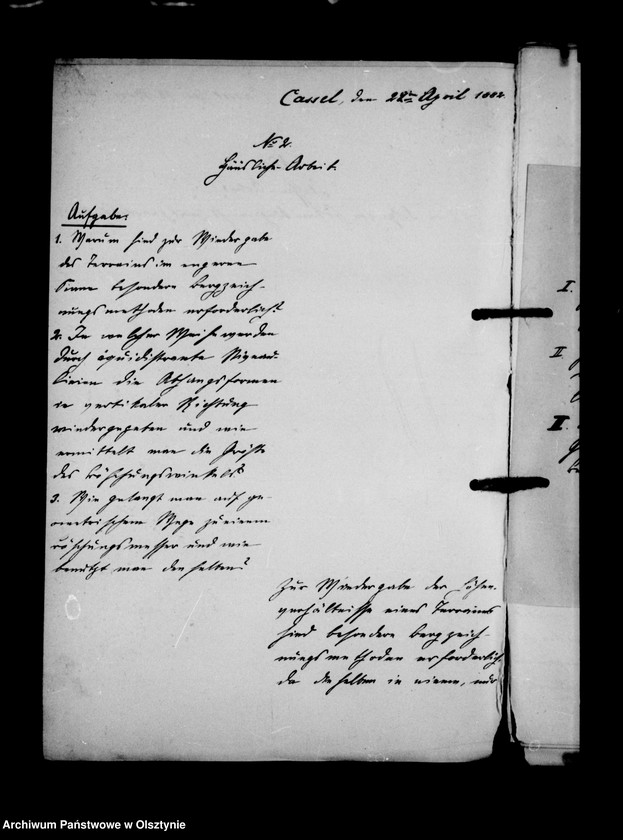 Cassel, den 28ten April 1882.
No 2.
Häusliche Arbeit.
Aufgabe:
1. Warum sind zur Wiedergabe
des Terrains im engeren
Sinne besondere Bergzeich-
nungsmethoden erforderlich?
2. In welcher Weise werden
durch äquidistante Niveau-
linien die Abhangsformen
in vertikaler Richtung
wiedergegeben und wie
ermittelt man die Größe
des Böschungswinkels?
3. Wie gelangt man auf ge-
ometrischem Wege zu einem
Böschungsmesser und wie
benutzt man denselben?
Zur Wiedergabe der Höhen-
verhältnisse eines Terrains
sind besondere Bergzeich-
nungsmethoden erforderlich,
da dieselben in einem, nur
I.
II
II.
Archiwum Państwowe w Olsztynie